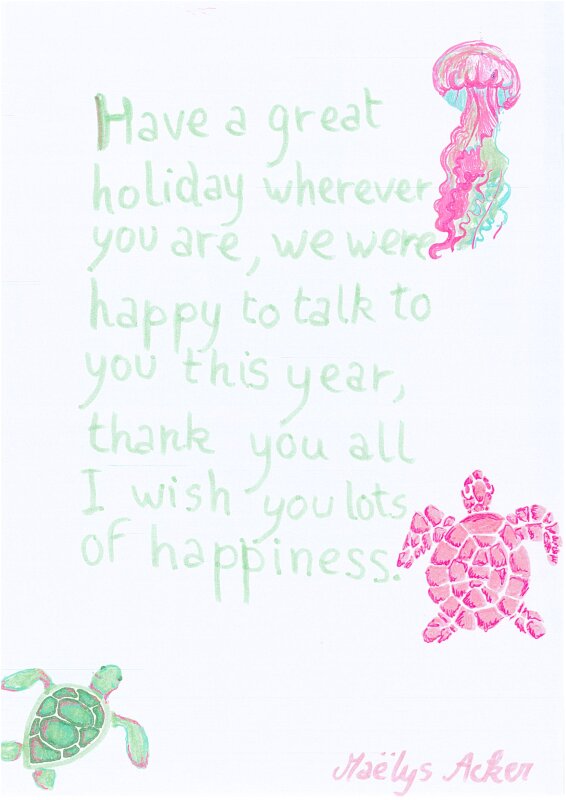 Have a great
holiday wherever
you are, we were
happy to talk to
you this year,
thank you all
I wish you lots
of happiness.
Maëlys Acker